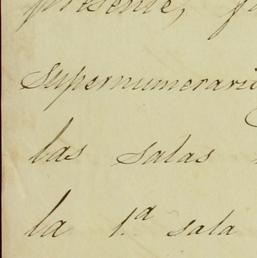 presente,
supernumerario
las salas
la 1.ª sala